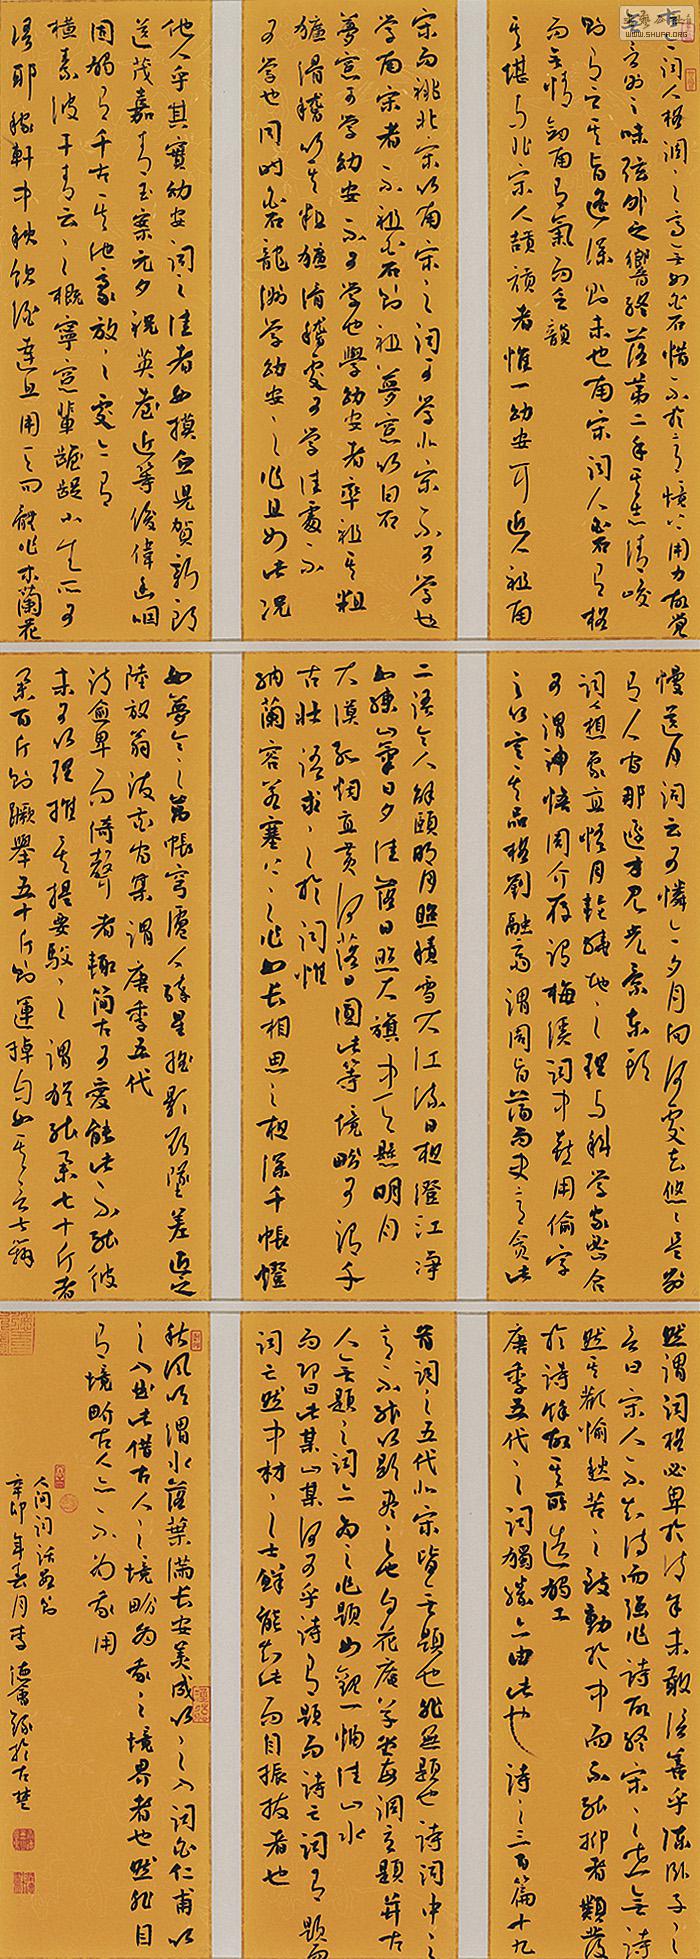 詞人格調之高無如白石惜不於意境上用力故覺
無言外之味弦外之響終落第二手其志清峻
則有之其旨遙深則未也南宋詞人白石有格
而無情劍南有氣而乏韻
其堪與北宋人頡頏者惟一幼安耳近人祖南
宋而祧北宋以南宋之詞可學北宋不可學也
學南宋者不祖白石則祖夢窗以白石
夢窗可學幼安不可學也學幼安者率祖其粗
獷滑稽以其粗獷滑稽處可學佳處不
可學也同時白石龍洲學幼安之作且如此況
他人乎其實幼安詞之佳者如摸魚兒賀新郎
送茂嘉青玉案元夕祝英臺近等俊偉幽咽
固獨有千古其他豪放之處亦有
橫素波干青雲之概寧夢窗輩齷齪小生所可
語耶稼軒中秋飲酒達旦用天問體作木蘭花
慢送月詞云可憐今夕月向何處去悠悠是別
有人間那邊才見光景東頭
詞人想象直悟月輪繞地之理與科學家密合
可謂神悟周介存謂梅溪詞中喜用偷字
足以定其品格劉融齋謂周旨蕩而史意貪此
二語令人解頤明月照積雪大江流日夜澄江淨
如練山氣日夕佳落日照大旗中天懸明月
大漠孤烟直黃河落日圓此等境界可謂千
古壯語求之於詞惟
納蘭容若塞上之作如長相思之夜深千帳燈
如夢令之萬帳穹廬人醉星搖影欲墜差近之
陸放翁跋花間集謂唐季五代
詩愈卑而倚聲者輒簡古可愛能此不能彼
未可以理推也提要駁之謂猶能舉七十斤者
舉百斤則蹶舉五十斤則運掉自如其言甚辨
然謂詞格必卑於詩余未敢信善乎陳臥子之
言曰宋人不知詩而強作詩故終宋之世無詩
然其歡愉愁苦之致動於中而不能抑者類發
於詩餘故其所造獨工
唐季五代之詞獨勝亦由此也 詩之三百篇十九
首詞之五代北宋皆無題也非無題也詩詞中之
意不能以題盡之也自花庵草堂每調立題并古
人無題之詞亦為之作題如觀一幅佳山水
而即曰此某山某河可乎詩有題而詩亡詞有題而
詞亡然中材之士鮮能知此而自振拔者也
秋風吹渭水落葉滿長安美成以之入詞白仁甫以
之入曲此借古人之境界為我之境界者也然非自
有境界古人亦不為我用
人间词话數則
辛卯年春月李於古楚
WWW.SHUFA.ORG